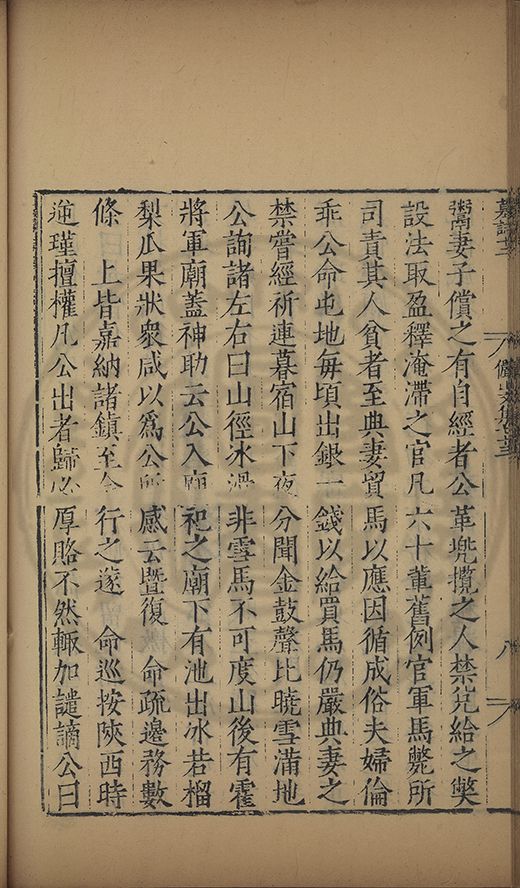 鬻妻子償之有自經者公革兠攬之人禁兊給之獘
設法取盈釋淹滯之官凡六十軰舊例官軍馬斃所
司責其人貧者至典妻貿馬以應因循成俗夫婦倫
乖公命屯地每頃出銀一錢以給買馬仍嚴典妻之
禁嘗經祈連暮宿山下夜分聞金鼓聲比曉雪滿地
公詢諸左右曰山徑冰滑非雪馬不可度山後有霍
將軍廟蓋神助云公入廟祀之廟下有池出冰若榴
梨瓜果狀衆咸以爲公所感云曁復 命疏邊務數
條 上皆嘉納諸鎮至今行之遂 命巡按陝西時
逆瑾擅權凡公出者歸必厚賂不然輙加譴謫公曰